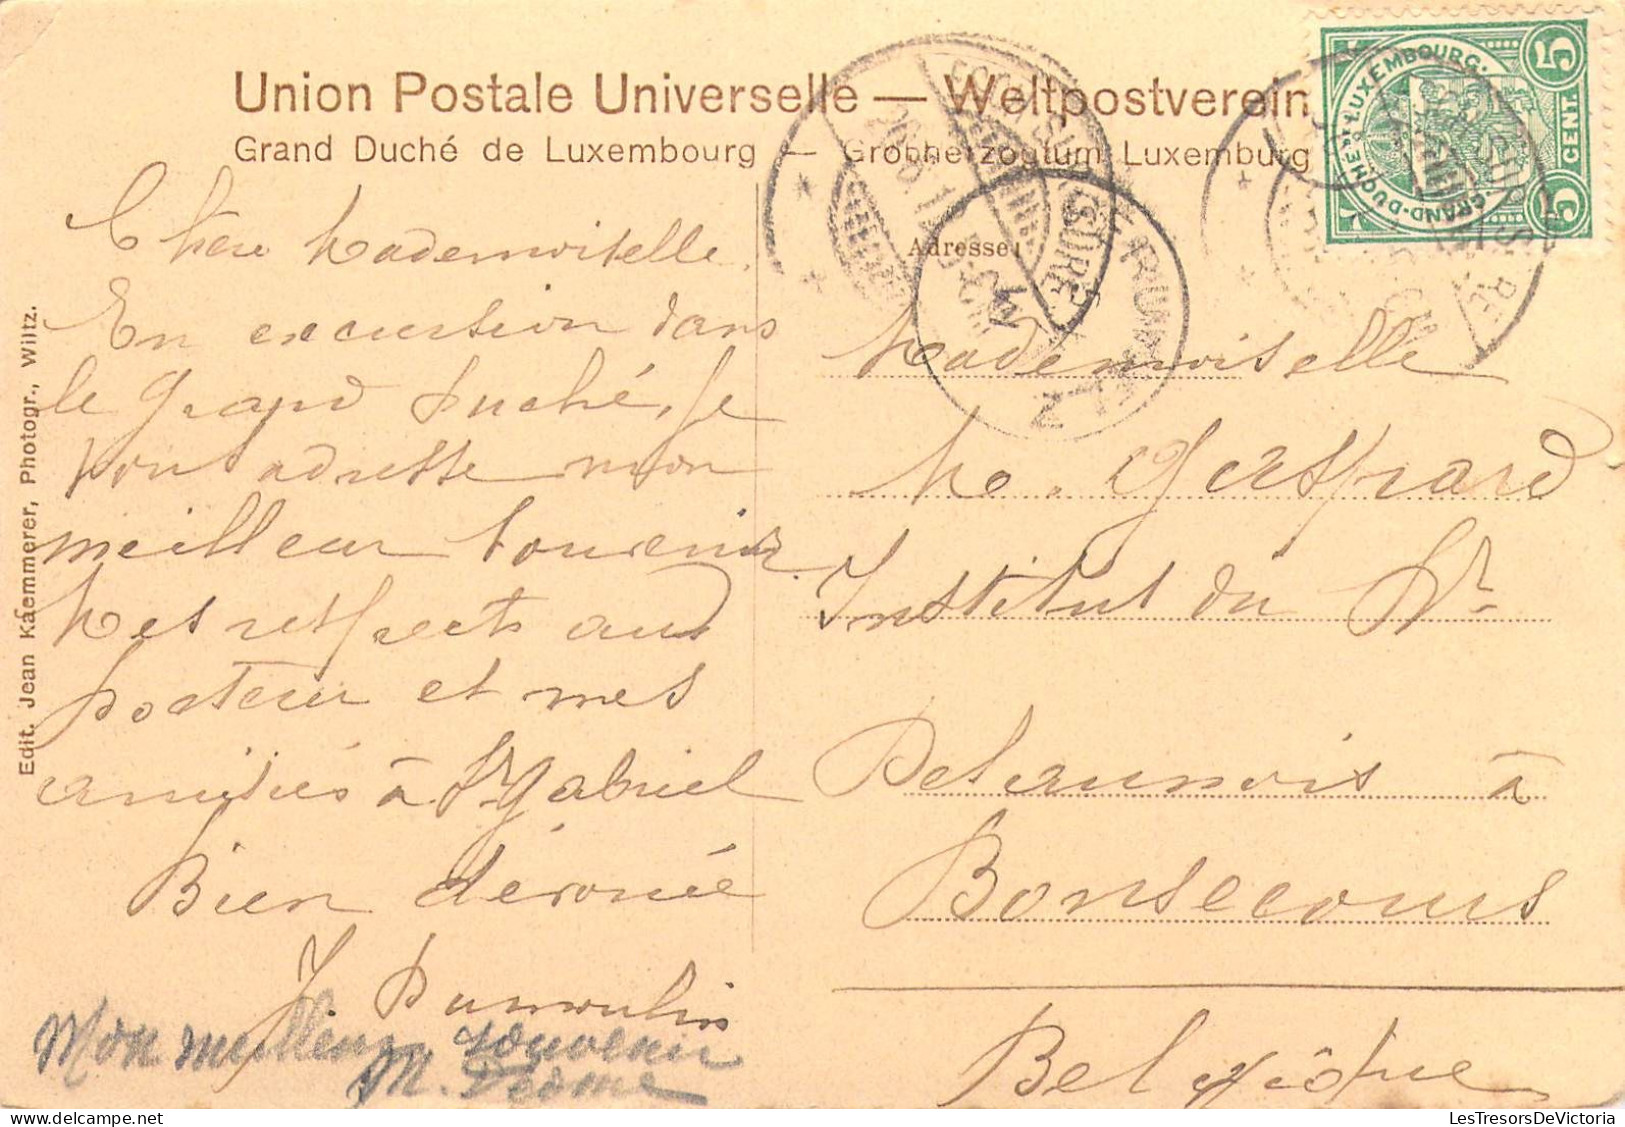 Union Postale Universelle — Weltpostverein
Grand Duché de Luxembourg — Großherzogtum Luxemburg
Adresse:
5 CENT 5
LUXEMBOURG
GRAND-DUCHÉ
ESCH-SUR-SÛRE
Chère Mademoiselle,
En excursion dans
le Grand Duché, je
vous adresse mon
meilleur souvenir.
Mes respects aud
porteur et mes
amitiés à Sr Gabriel
Bien dévouée
J. Dumoulin
Mon meilleur souvenir
M.
Mademoiselle
M. Gaspard
Institut du Dr
Delaunois à
Bonsecours
Belgique
Edit. Jean Kaemmerer, Photogr., Wiltz.
LesTresorsDeVictoria.com